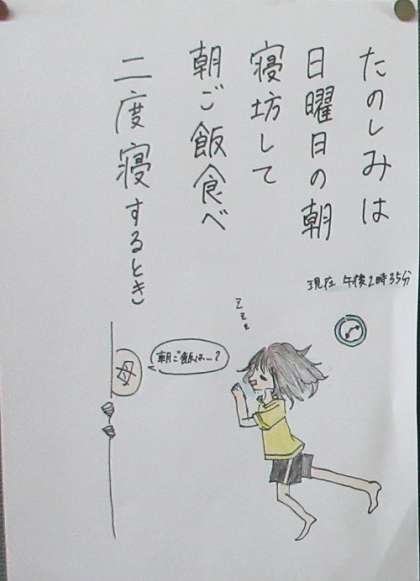 たのしみは
日曜日の朝
寝坊して
朝ご飯食べ
二度寝するとき
現在 午後2時35分
zzzz
朝ご飯は…?
母